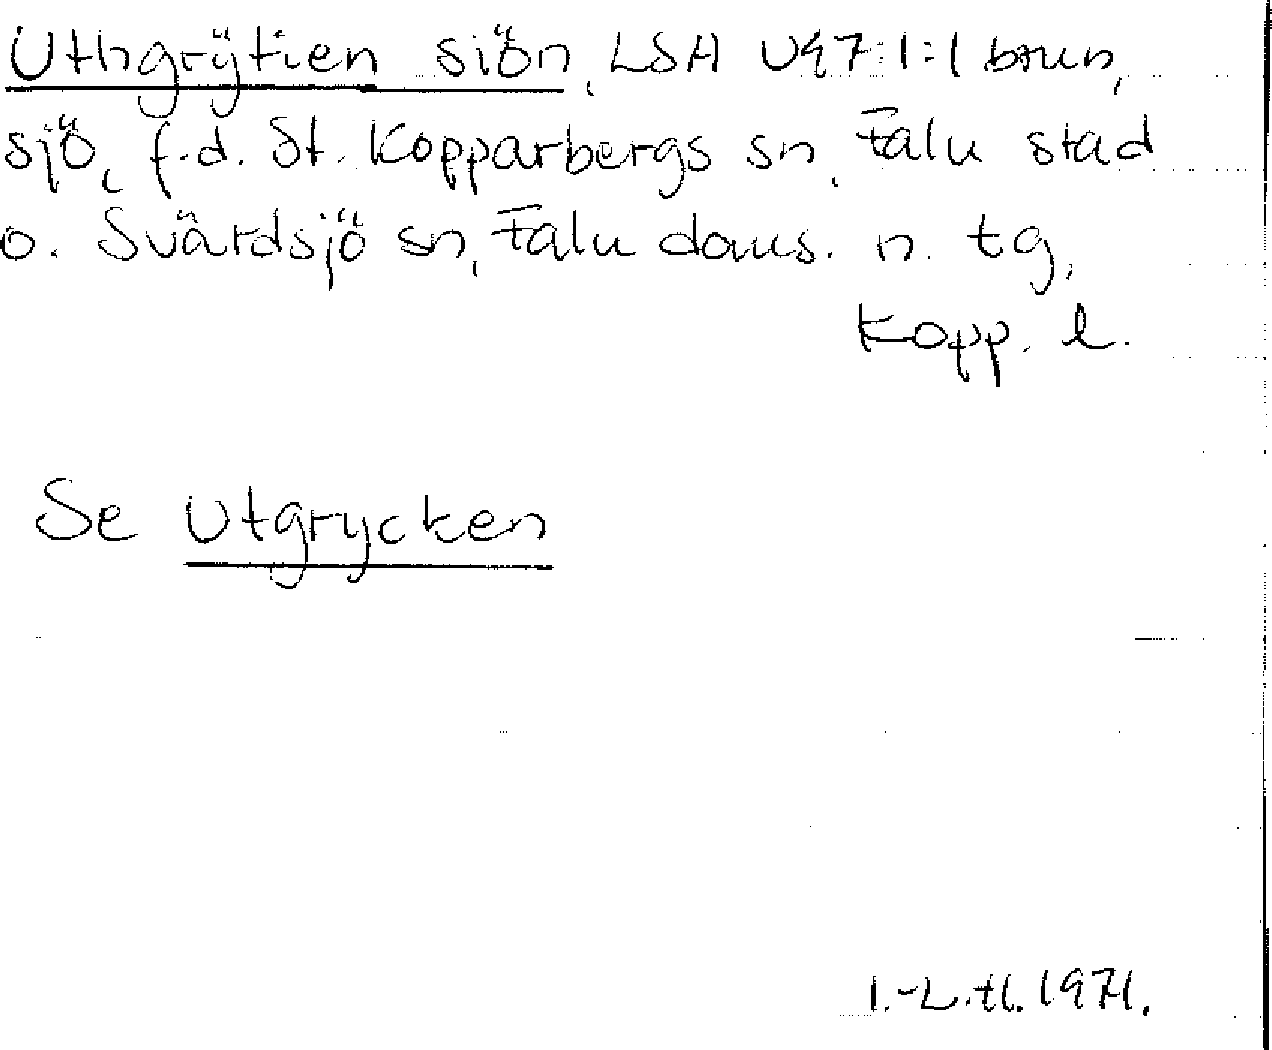 Uthgrÿtien siön, LSA U97:1:1 brun,
sjö, f.d. St. Kopparbergs sn, Falu stad
o. Svärdsjö sn, Falu doms. n. tg,
Kopp. l.
Se Utgrycken
I.-L.H. 1971.